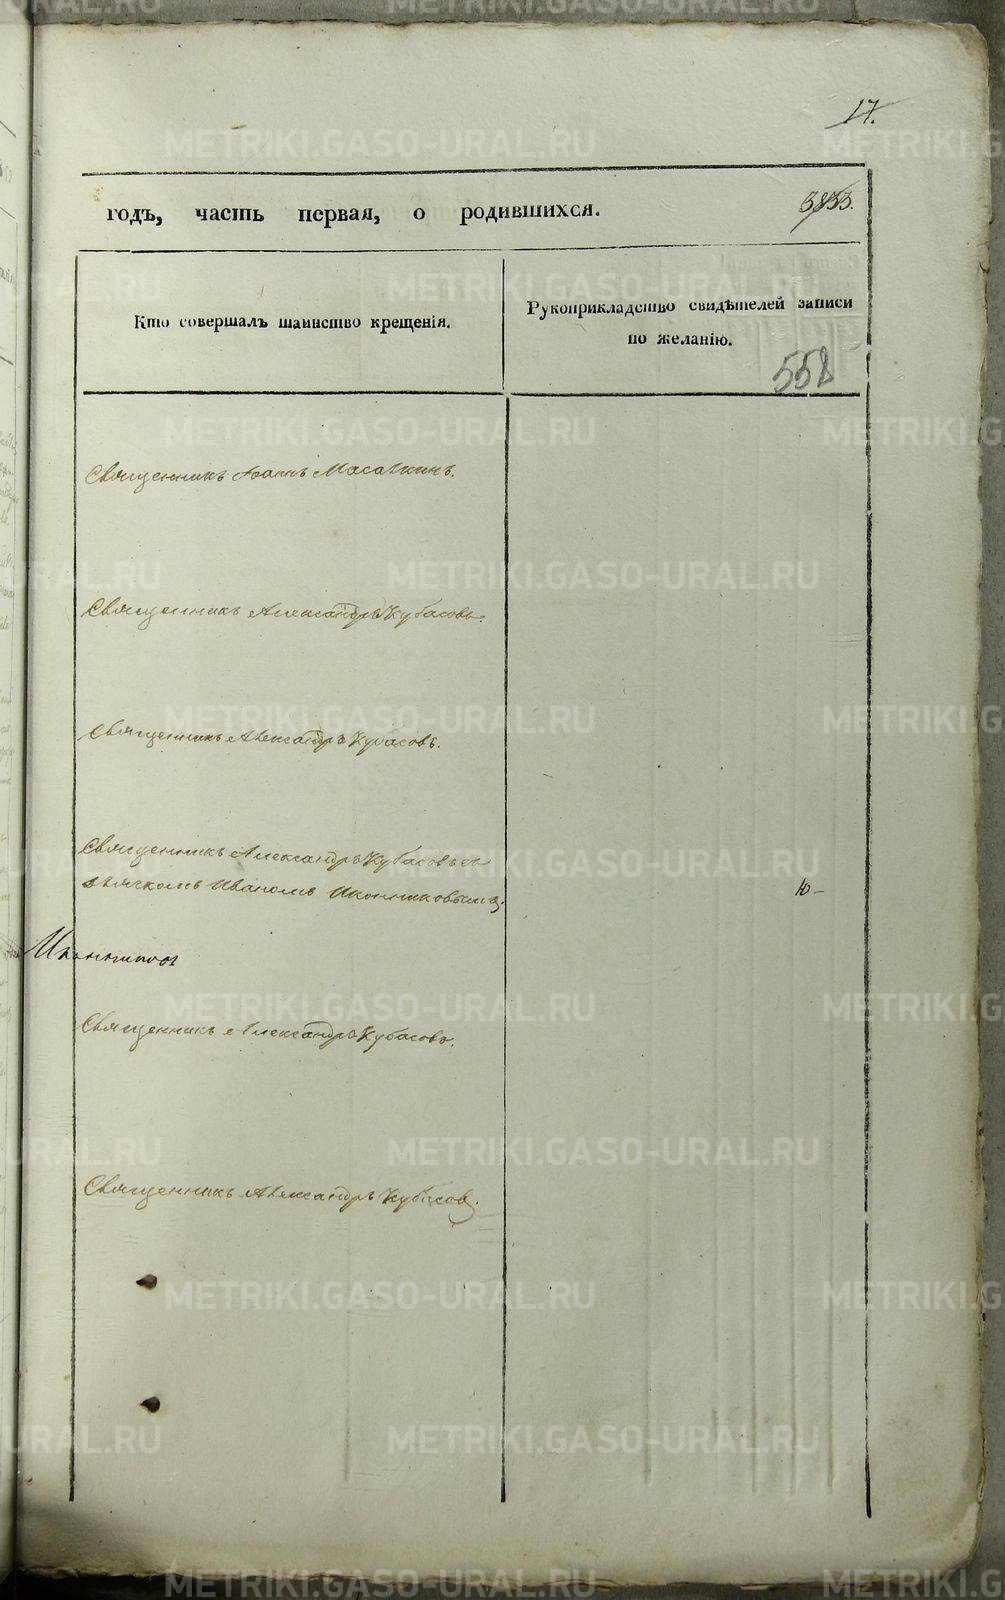 17.
годъ, часть первая, о родившихся.
3833.
Кто совершалъ таинство крещенія.
Рукоприкладство свидѣтелей записи
по желанію.
558
Священникъ Іоаннъ
Священникъ Александръ Кубасовъ.
Священникъ Александръ Кубасовъ.
Священникъ Александръ Кубасовъ съ
дьячкомъ Иваномъ Иконниковымъ.
Священникъ Александръ Кубасовъ.
Священникъ Александръ Кубасовъ.
METRIKI.GASO-URAL.RU